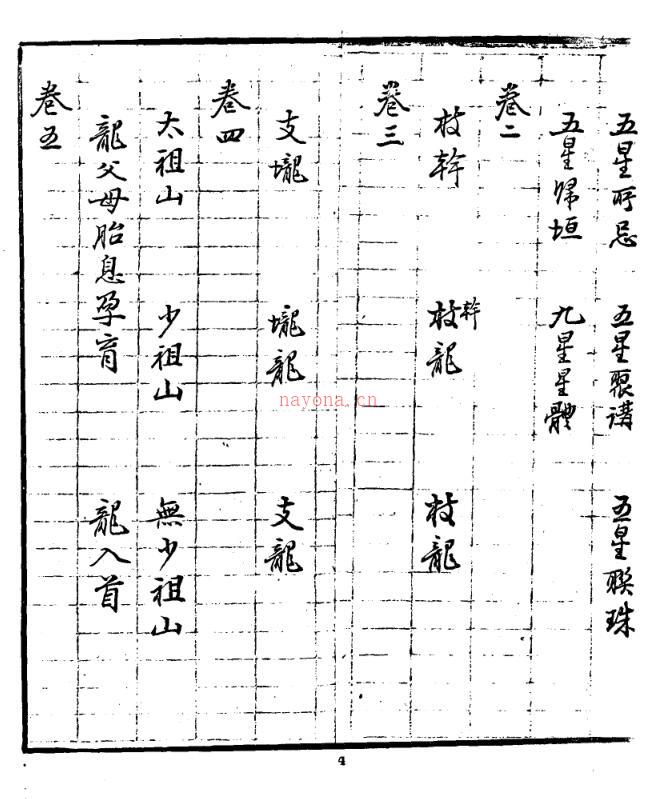 五星所忌 五星聚講 五星聯珠
五星歸垣 九星星體
卷二
枝幹 枝幹龍 枝龍
卷三
支壠 壠龍 支龍
卷四
太祖山 少祖山 無少祖山
龍父母胎息孕育 龍入首
卷五
nayona.cn
4